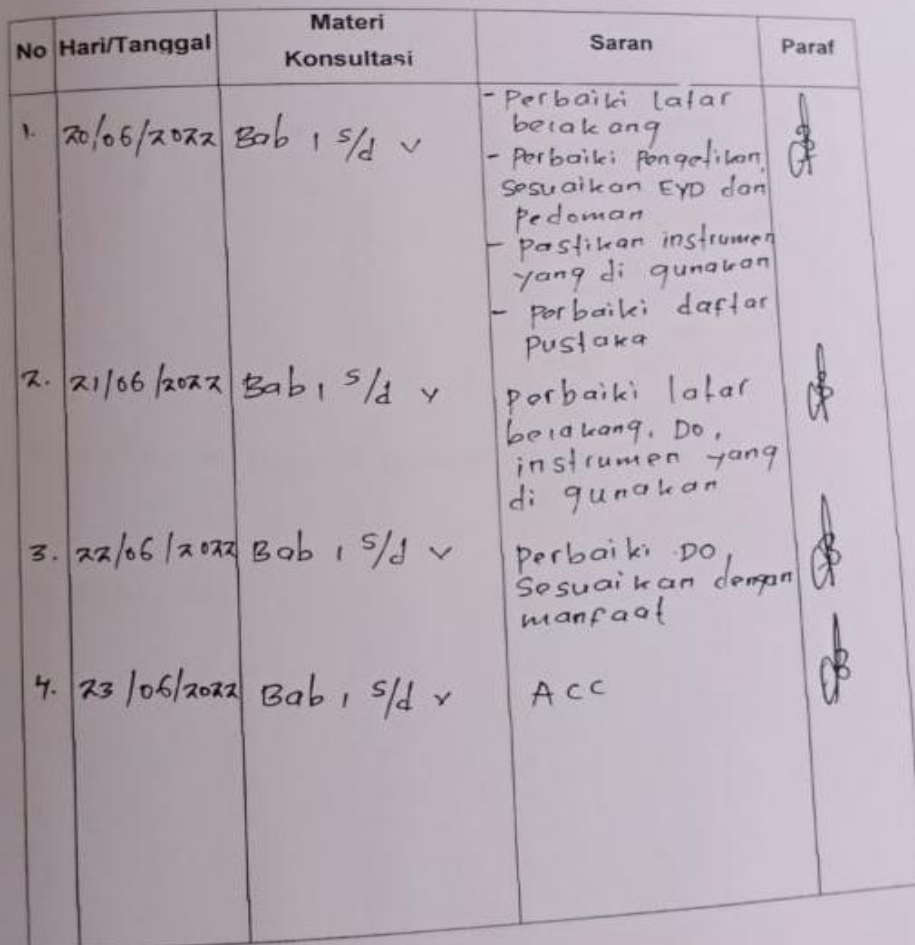 No Hari/Tanggal Materi Konsultasi Saran Paraf
1. 20/06/2022 Bab I s/d V - Perbaiki latar
belakang
- Perbaiki Pengetikan,
sesuaikan EYD dan
Pedoman
- Pastikan instrumen
yang di gunakan
- Perbaiki daftar
Pustaka
2. 21/06/2022 Bab I s/d V Perbaiki latar
belakang, DO,
instrumen yang
di gunakan
3. 22/06/2022 Bab I s/d V Perbaiki DO,
Sesuaikan dengan
manfaat
4. 23/06/2022 Bab I s/d V ACC